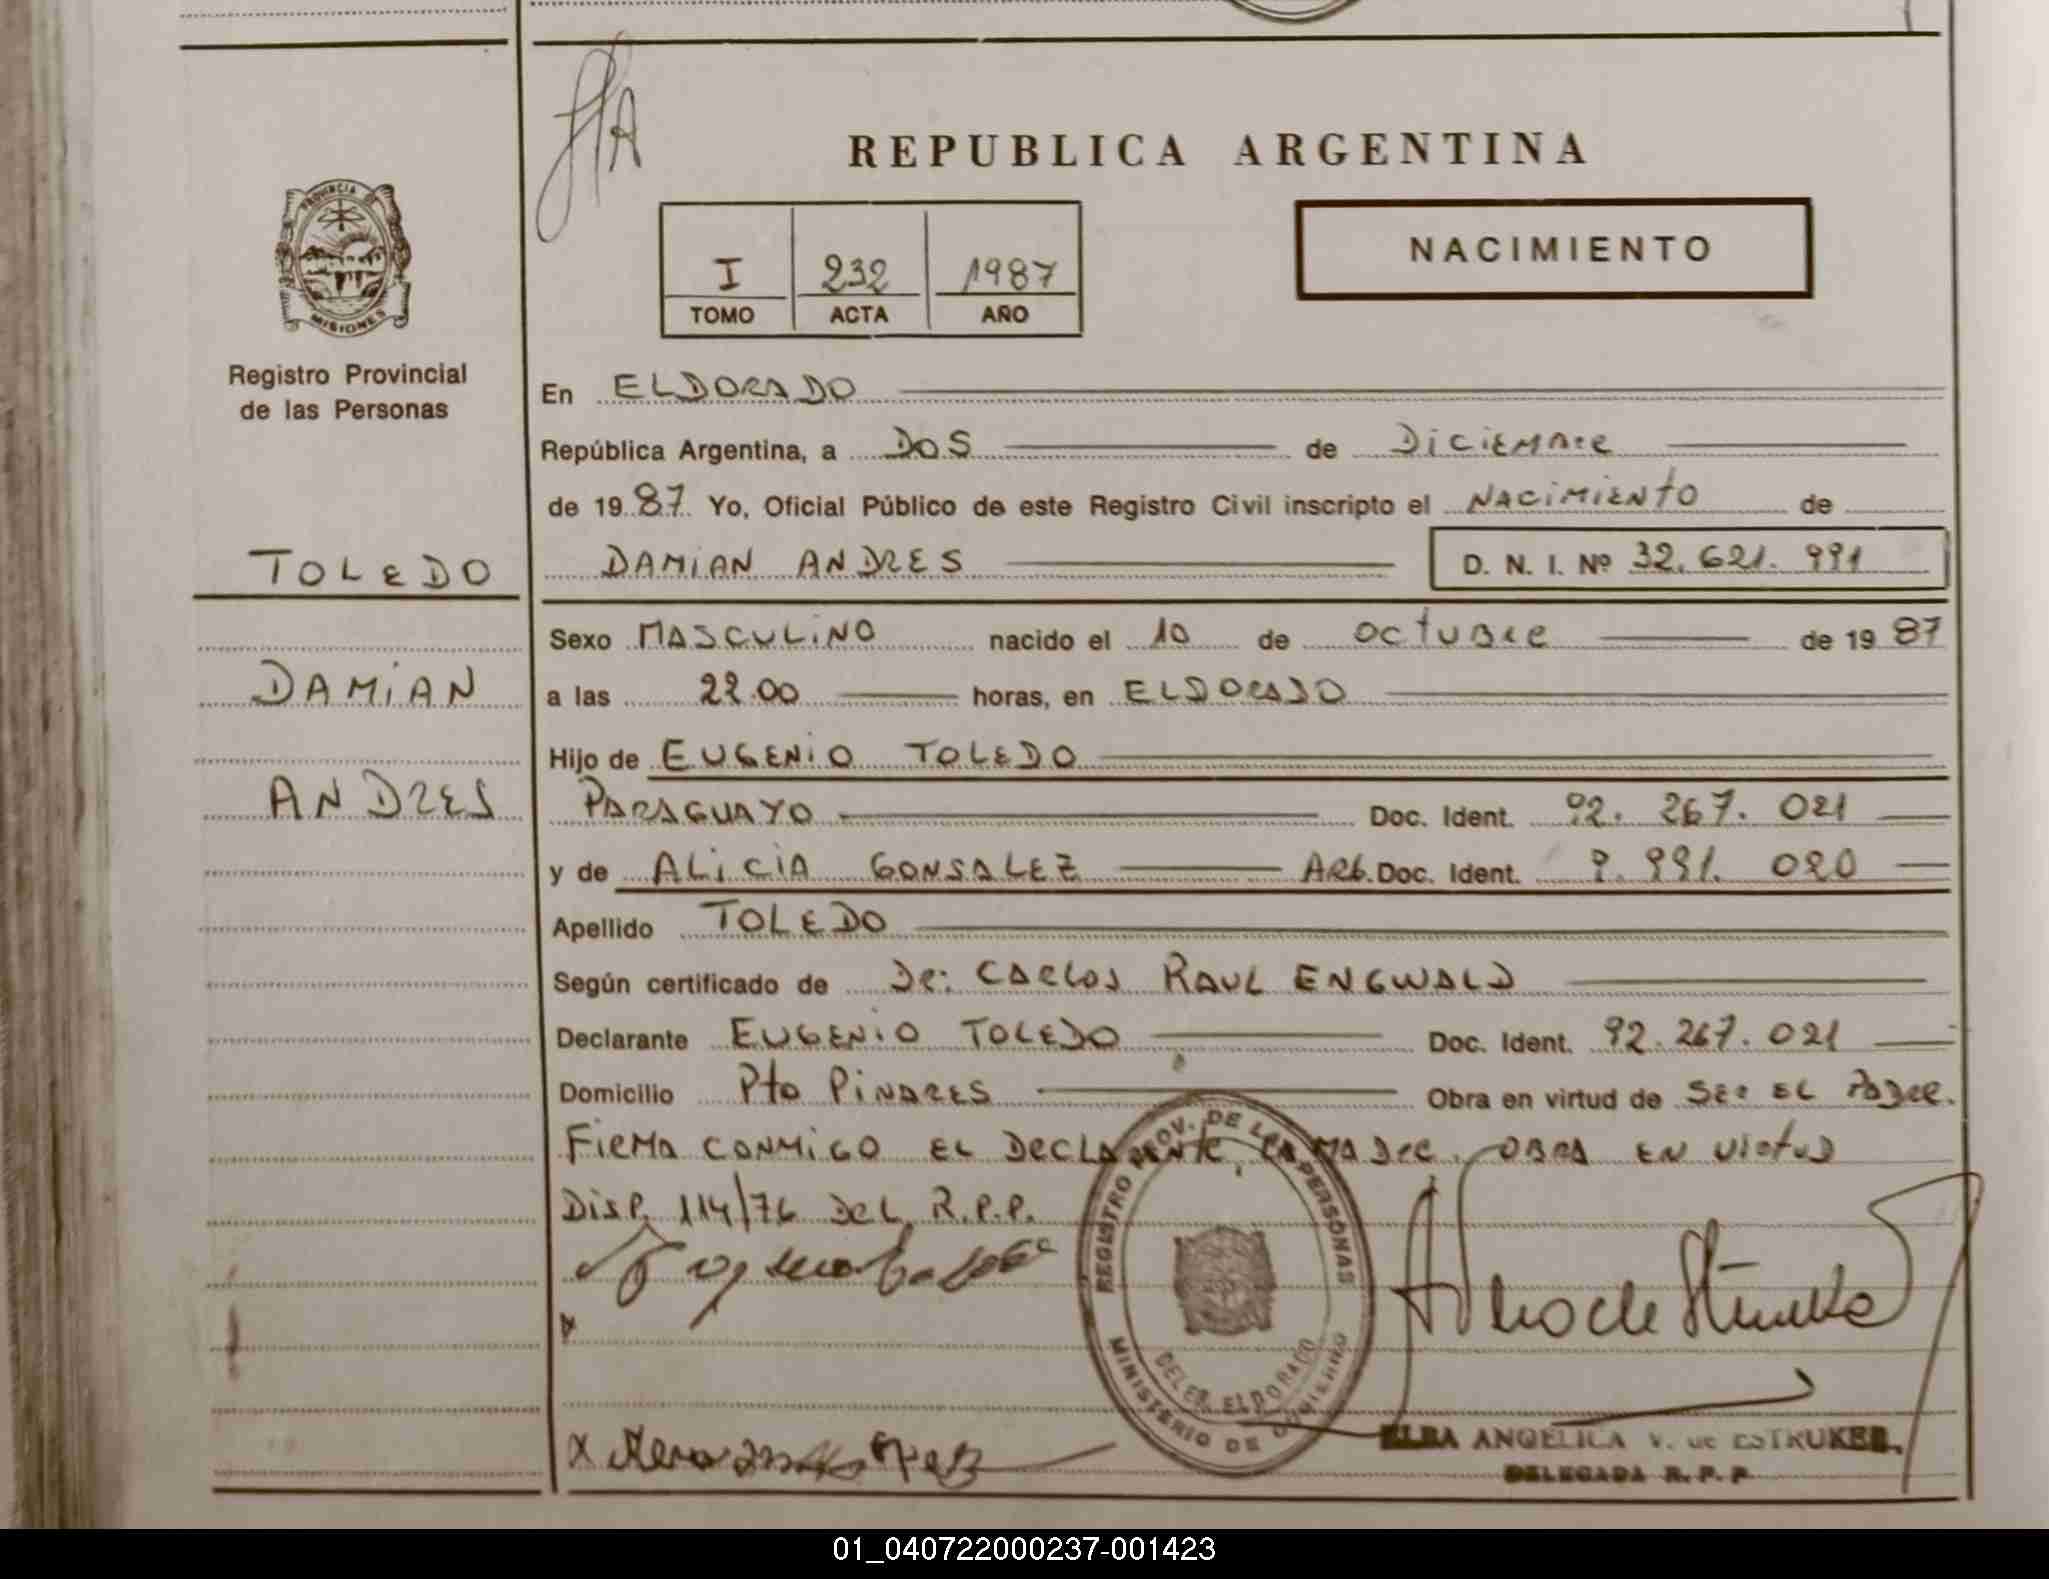 REPUBLICA ARGENTINA
NACIMIENTO
I 232 1987
TOMO ACTA AÑO
PROVINCIA DE
MISIONES
Registro Provincial
de las Personas
TOLEDO
DAMIAN
ANDRES
En ELDORADO
República Argentina, a DOS de DICIEMBRE
de 1987 Yo, Oficial Público de este Registro Civil inscripto el NACIMIENTO de
DAMIAN ANDRES D. N. I. Nº 32.621.991
Sexo MASCULINO nacido el 10 de OCTUBRE de 1987
a las 22.00 horas, en ELDORADO
Hijo de EUGENIO TOLEDO
PARAGUAYO Doc. Ident. 92.267.021
y de ALICIA GONSALEZ ARG. Doc. Ident. 9.991.020
Apellido TOLEDO
Según certificado de Dr: CARLOS RAUL ENGWALD
Declarante EUGENIO TOLEDO Doc. Ident. 92.267.021
Domicilio Pto PINARES Obra en virtud de SER EL PADRE.
FIRMA CONMIGO EL DECLARANTE, LA MADRE. OBRA EN VIRTUD
DISP. 114/76 DEL R.P.P.
REGISTRO PROV. DE LAS PERSONAS
DELEG. ELDORADO
MINISTERIO DE GOBIERNO
ELBA ANGELICA V. de ESTRUKEL
DELEGADA R. P. P
01_040722000237-001423